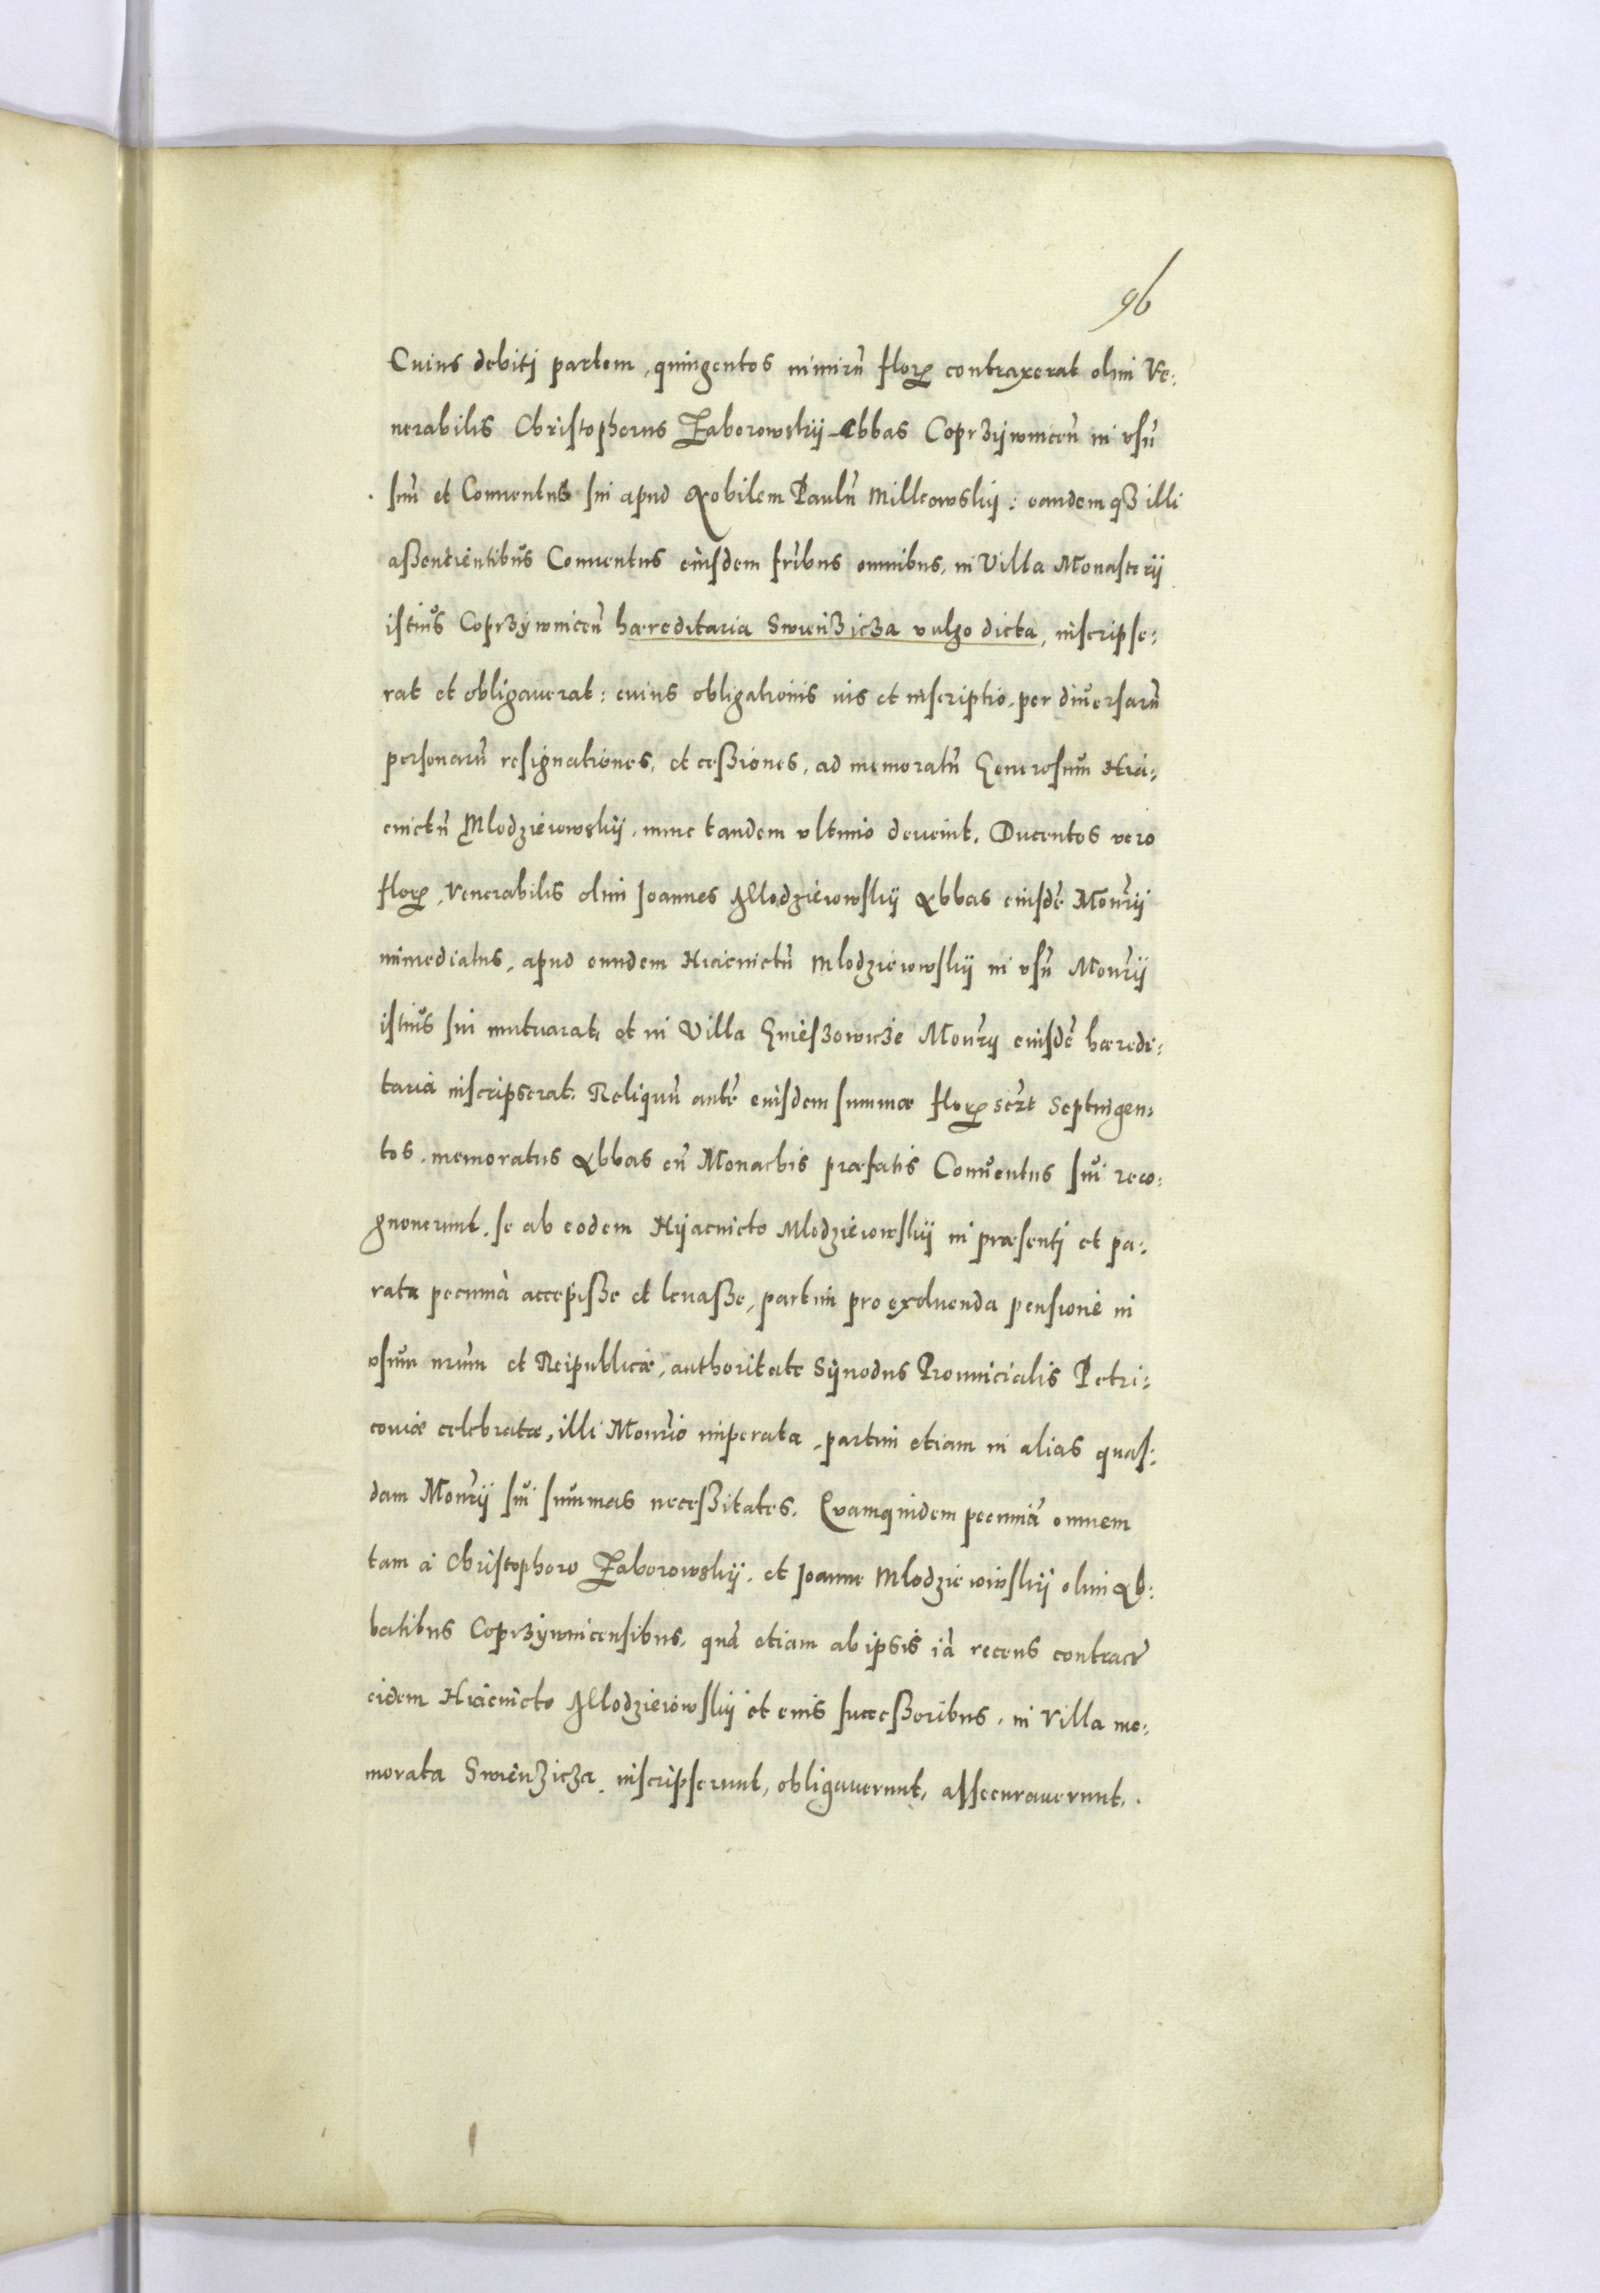 96
Cuius debiti partem, quingentos nimirũ floreꝝ contraxerat olim Ve:
nerabilis Christophorus Zaborowskij Abbas Coprzijwnicen̄ in vsũ
suũ et Conuentus sui apud Nobilem Paulũ Milleowskij: eandemqꝫ illi
aßentientibus Conuentus eiusdem fr̃ibus omnibus, in Villa Monasterij
istius Coprzÿwnicen̄ hæreditaria Swienzicza vulgo dicta, inscripse:
rat et obligauerat: cuius obligationis uis et inscriptio, per diuersarũ
personarũ resignationes, et ceßiones, ad memoratũ Generosum Hia:
cinctũ Mlodzieiowskij, nunc tandem vltimo deuenit. Ducentos vero
floreꝝ, Venerabilis olim Joannes Mlodzieiowskij Abbas eiusdẽ Monr̃ij
immediatus, apud eundem Hiacinctũ Mlodzieiowskij in vsũ Monr̃ij
istius sui mutuarat, et in Villa Gnieszowicze Monr̃ij eiusdẽ hæredi:
taria inscripserat. Reliquũ autẽ eiusdem summæ floreꝝ scr̃t Septingen:
tos, memoratus Abbas cũ Monachis præfatis Conuentus sui reco:
gnouerunt, se ab eodem Hyacincto Mlodzieiowskij in præsentj et pa:
rata pecunia accepiße et leuaße, partim pro exoluenda pensione in
vsum nr̃um et Reipublicæ, authoritate Sÿnodus Prouincialis Petri:
couiæ celebratæ, illi Monr̃io imperata, partim etiam in alias quas:
dam Monr̃ij sui summas neceßitates. Quamquidem pecuniã omnem
tam à Christophoro Zaborowskij, et Joanne Mlodzieiowskij olim Ab:
batibus Coprzÿwnicensibus, quã etiam ab ipsis iã recens contractã
eidem Hiacincto Mlodzieiowskij et eius succeßoribus, in Villa me:
morata Swienzicza, inscripserunt, obligauerunt, assecurauerunt.